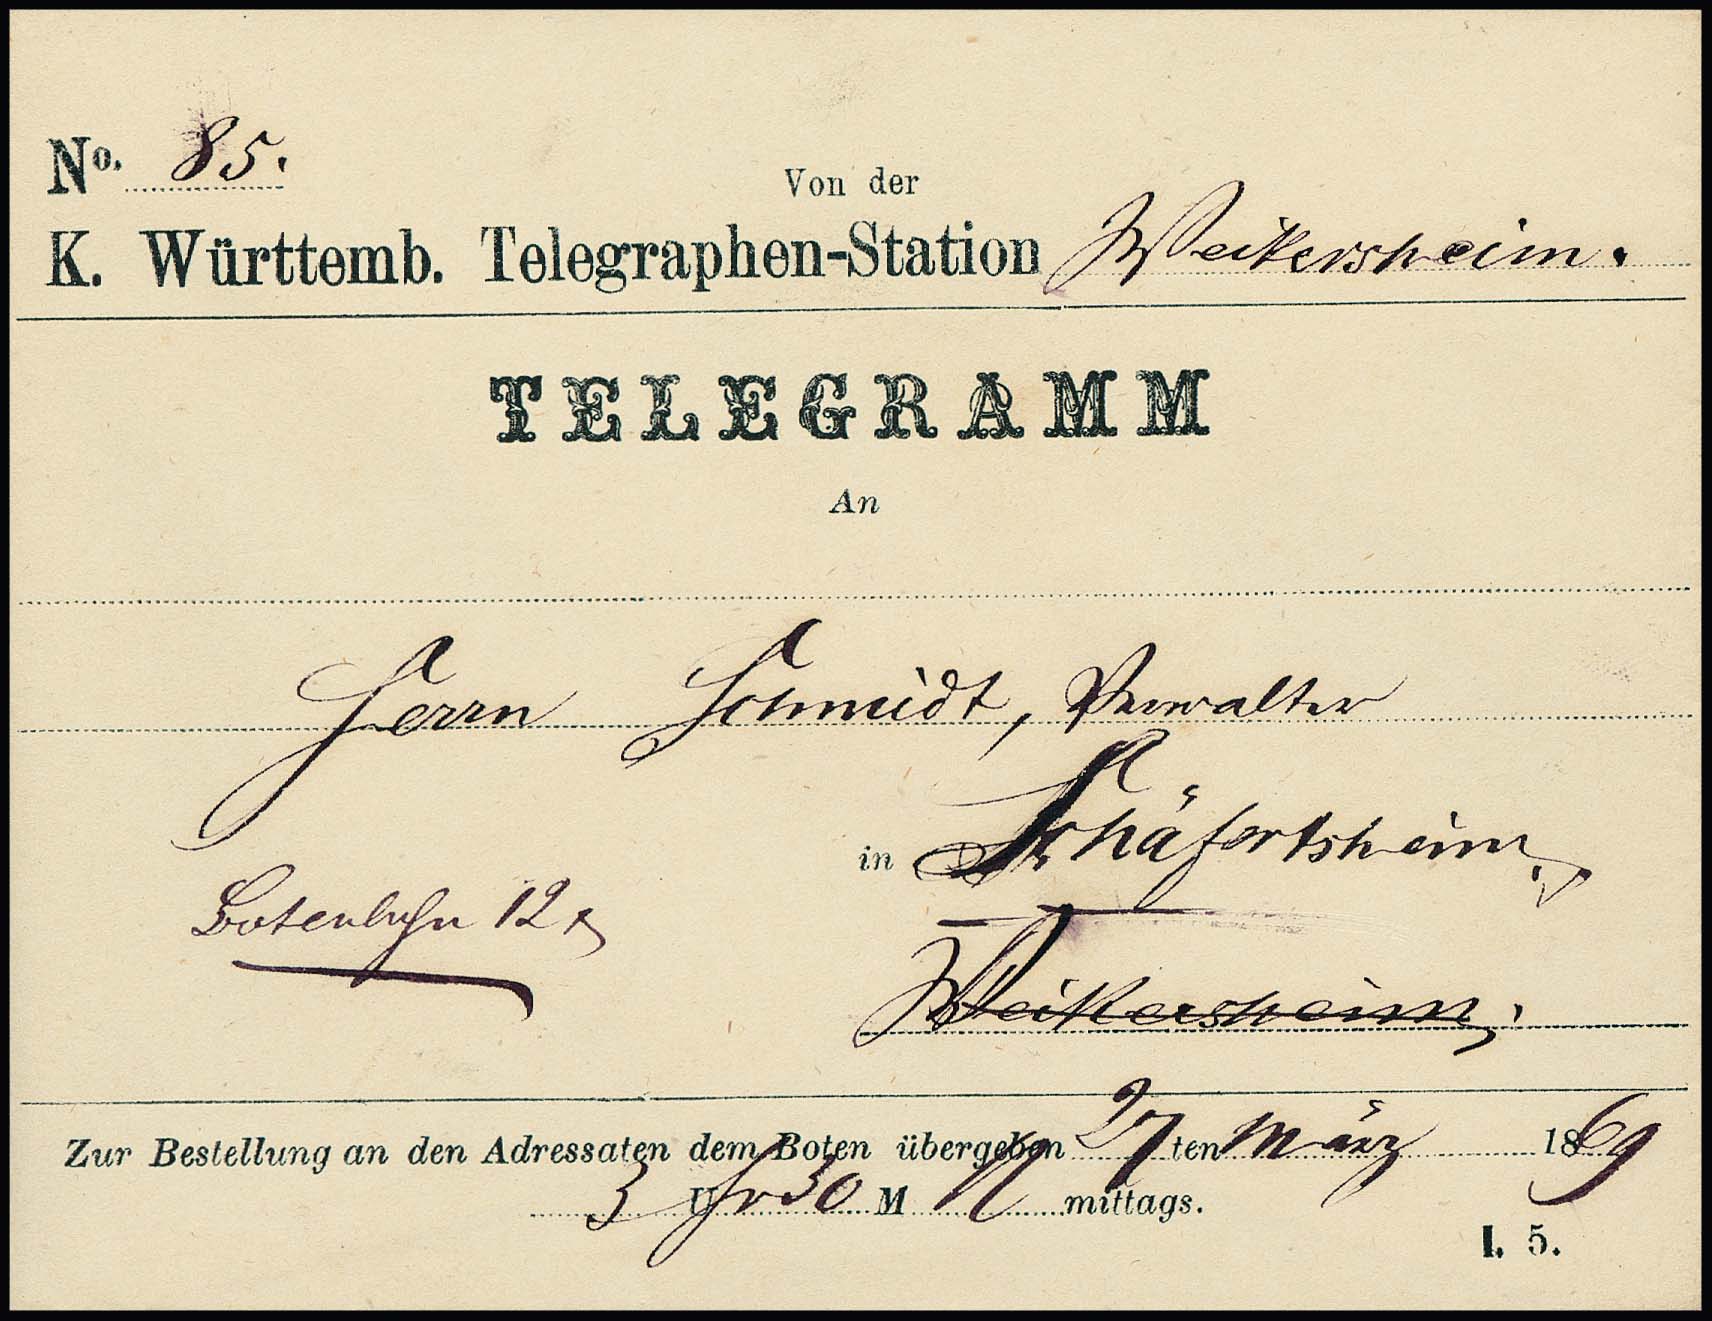 No. 85.
Von der
K. Württemb. Telegraphen-Station Weikersheim.
TELEGRAMM
An
Herrn Schmidt, Verwalter
in Schäfertsheim
Botenlohn 12 x
Weikersheim.
Zur Bestellung an den Adressaten dem Boten übergeben 27 ten März 1869
3 Uhr 30 M N mittags.
I. 5.